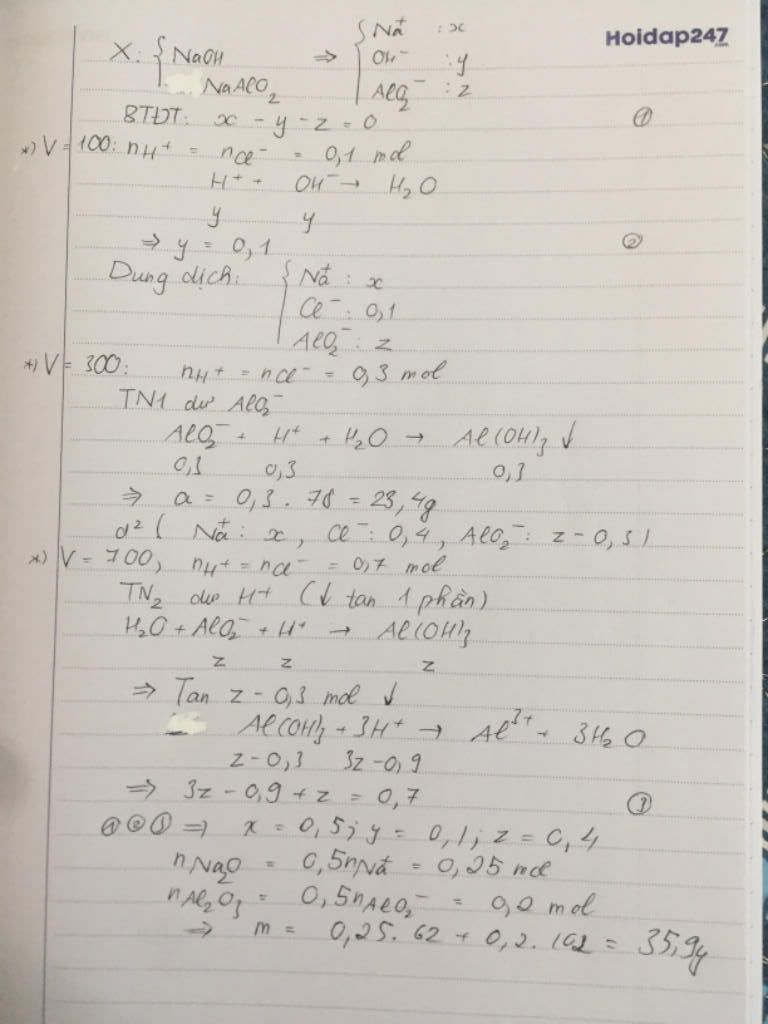 Hoidap247.com
X: { NaOH ⇒ { Na⁺ : x
OH⁻ : y
NaAlO₂ AlO₂⁻ : z
BTĐT: x - y - z = 0 ①
*) V = 100: nH⁺ = nCl⁻ = 0,1 mol
H⁺ + OH⁻ → H₂O
y y
⇒ y = 0,1 ②
Dung dịch: { Na⁺ : x
Cl⁻ : 0,1
AlO₂⁻ : z
*) V = 300: nH⁺ = nCl⁻ = 0,3 mol
TN1 dư AlO₂⁻
AlO₂⁻ + H⁺ + H₂O → Al(OH)₃ ↓
0,3 0,3 0,3
⇒ a = 0,3 . 78 = 23,4g
d² ( Na⁺ : x , Cl⁻ : 0,4 , AlO₂⁻ : z - 0,3 )
*) V = 700, nH⁺ = nCl⁻ = 0,7 mol
TN₂ dư H⁺ (↓ tan 1 phần)
H₂O + AlO₂⁻ + H⁺ → Al(OH)₃
z z z
⇒ Tan z - 0,3 mol ↓
Al(OH)₃ + 3H⁺ → Al³⁺ + 3H₂O
z - 0,3 3z - 0,9
⇒ 3z - 0,9 + z = 0,7 ③
①②③ ⇒ x = 0,5; y = 0,1; z = 0,4
nNa₂O = 0,5nNa⁺ = 0,25 mol
nAl₂O₃ = 0,5nAlO₂⁻ = 0,2 mol
⇒ m = 0,25. 62 + 0,2. 102 = 35,9g